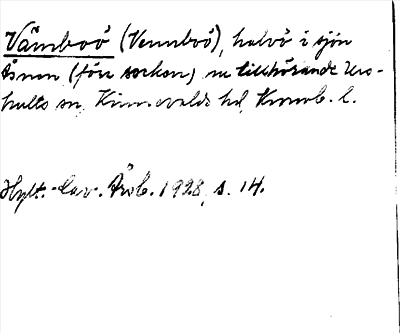 Vämboö (Vennboö), halvö i sjön
Åsnen (förr socken) nu tillhörande Urs-
hults sn, Kinnevalds hd, Kronob. l.
Hylt.-Cav. Årsb. 1928, s. 14.